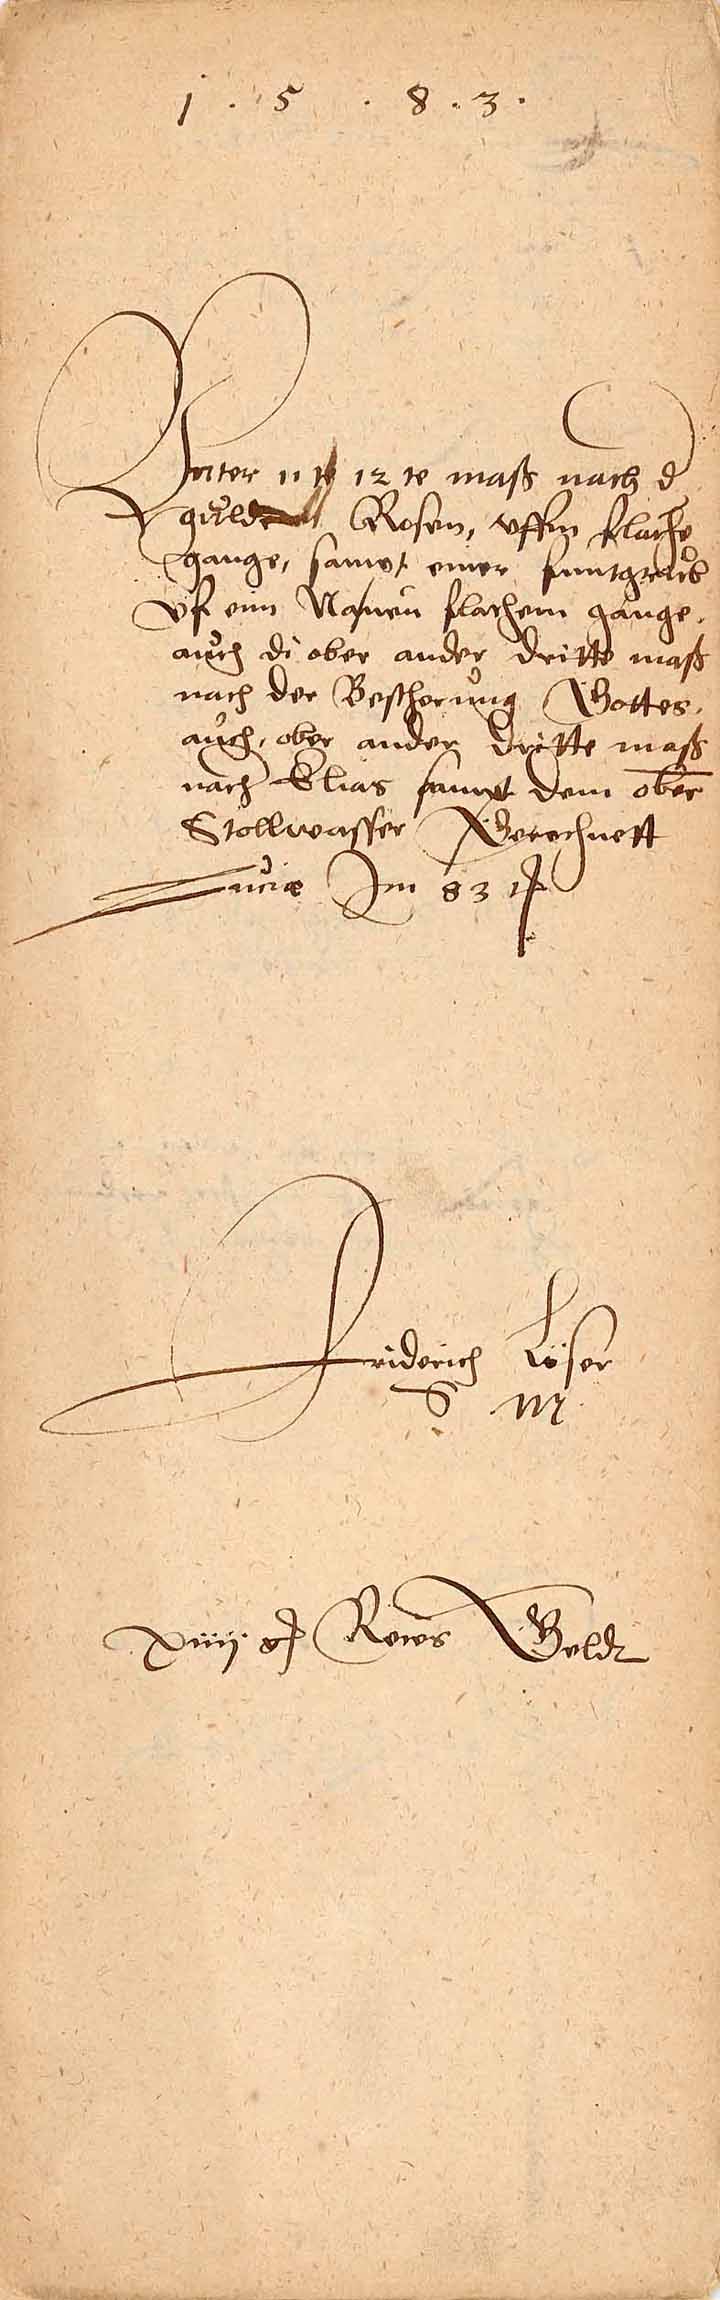 1 . 5 . 8 . 3 .
Vnter 11 te 12 te maß nach d
gulden Rosen, vffm flache
gange, sampt einer funtgrub
vf eim Nauen flachem gange.
auch di ober ander dritte maß
nach der Bescherung Gottes.
auch, ober ander dritte maß
nach Elias sampt dem ober
Stollwasser Verechnett
Lucia Im 83 t
Friderich Löser
S M
xiiij gl Reces Geldt